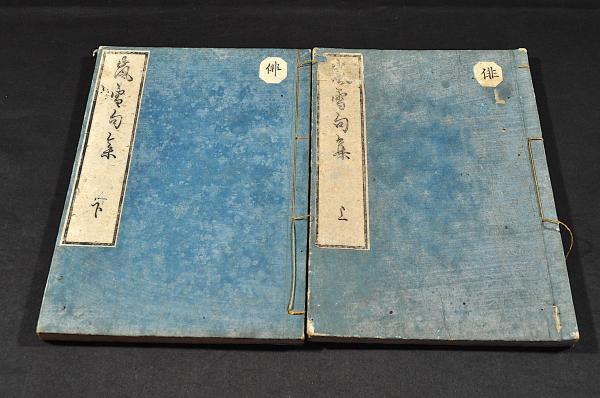 嵐雪句集 下
俳
嵐雪句集 上
俳